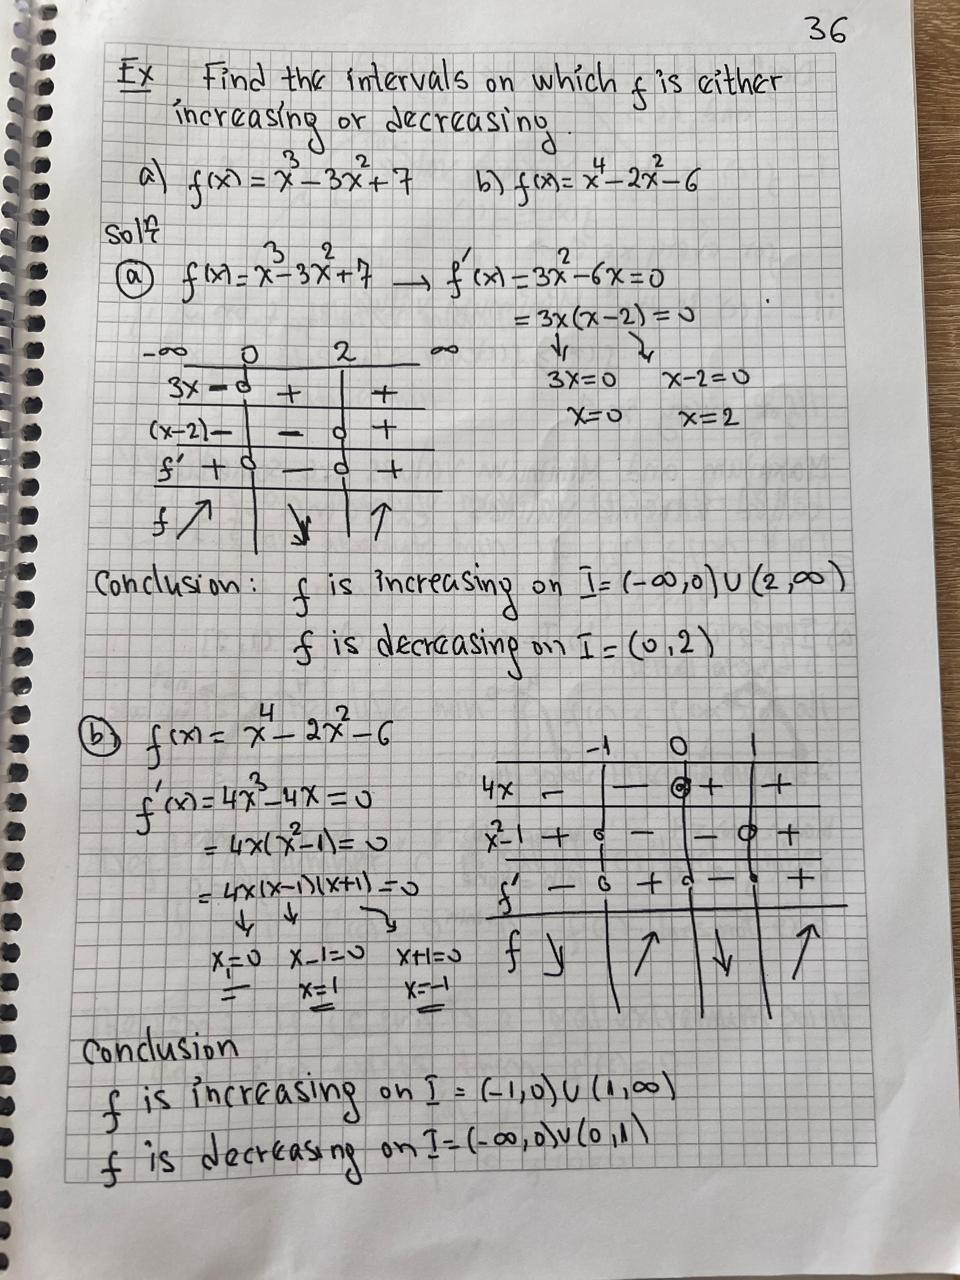 36
Ex Find the intervals on which f is either
increasing or decreasing.
a) f(x) = x³ - 3x² + 7 b) f(x) = x⁴ - 2x² - 6
solⁿ
ⓐ f(x) = x³ - 3x² + 7 → f'(x) = 3x² - 6x = 0
= 3x(x-2) = 0
↓ ↘
3x=0 x-2=0
x=0 x=2
-∞ 0 2 ∞
3x - 0 + +
(x-2) - - 0 +
f' + 0 - 0 +
f ↗ ↘ ↑
Conclusion: f is increasing on I = (-∞,0) ∪ (2,∞)
f is decreasing on I = (0,2)
ⓑ f(x) = x⁴ - 2x² - 6
f'(x) = 4x³ - 4x = 0
= 4x(x²-1) = 0
= 4x(x-1)(x+1) = 0
↓ ↓ ↘
x₁=0 x-1=0 x+1=0
x=1 x=-1
-1 0 1
4x - - 0 + +
x²-1 + 0 - - 0 +
f' - 0 + 0 - 0 +
f ↘ ↗ ↓ ↗
Conclusion
f is increasing on I = (-1,0) ∪ (1,∞)
f is decreasing on I = (-∞,0) ∪ (0,1)